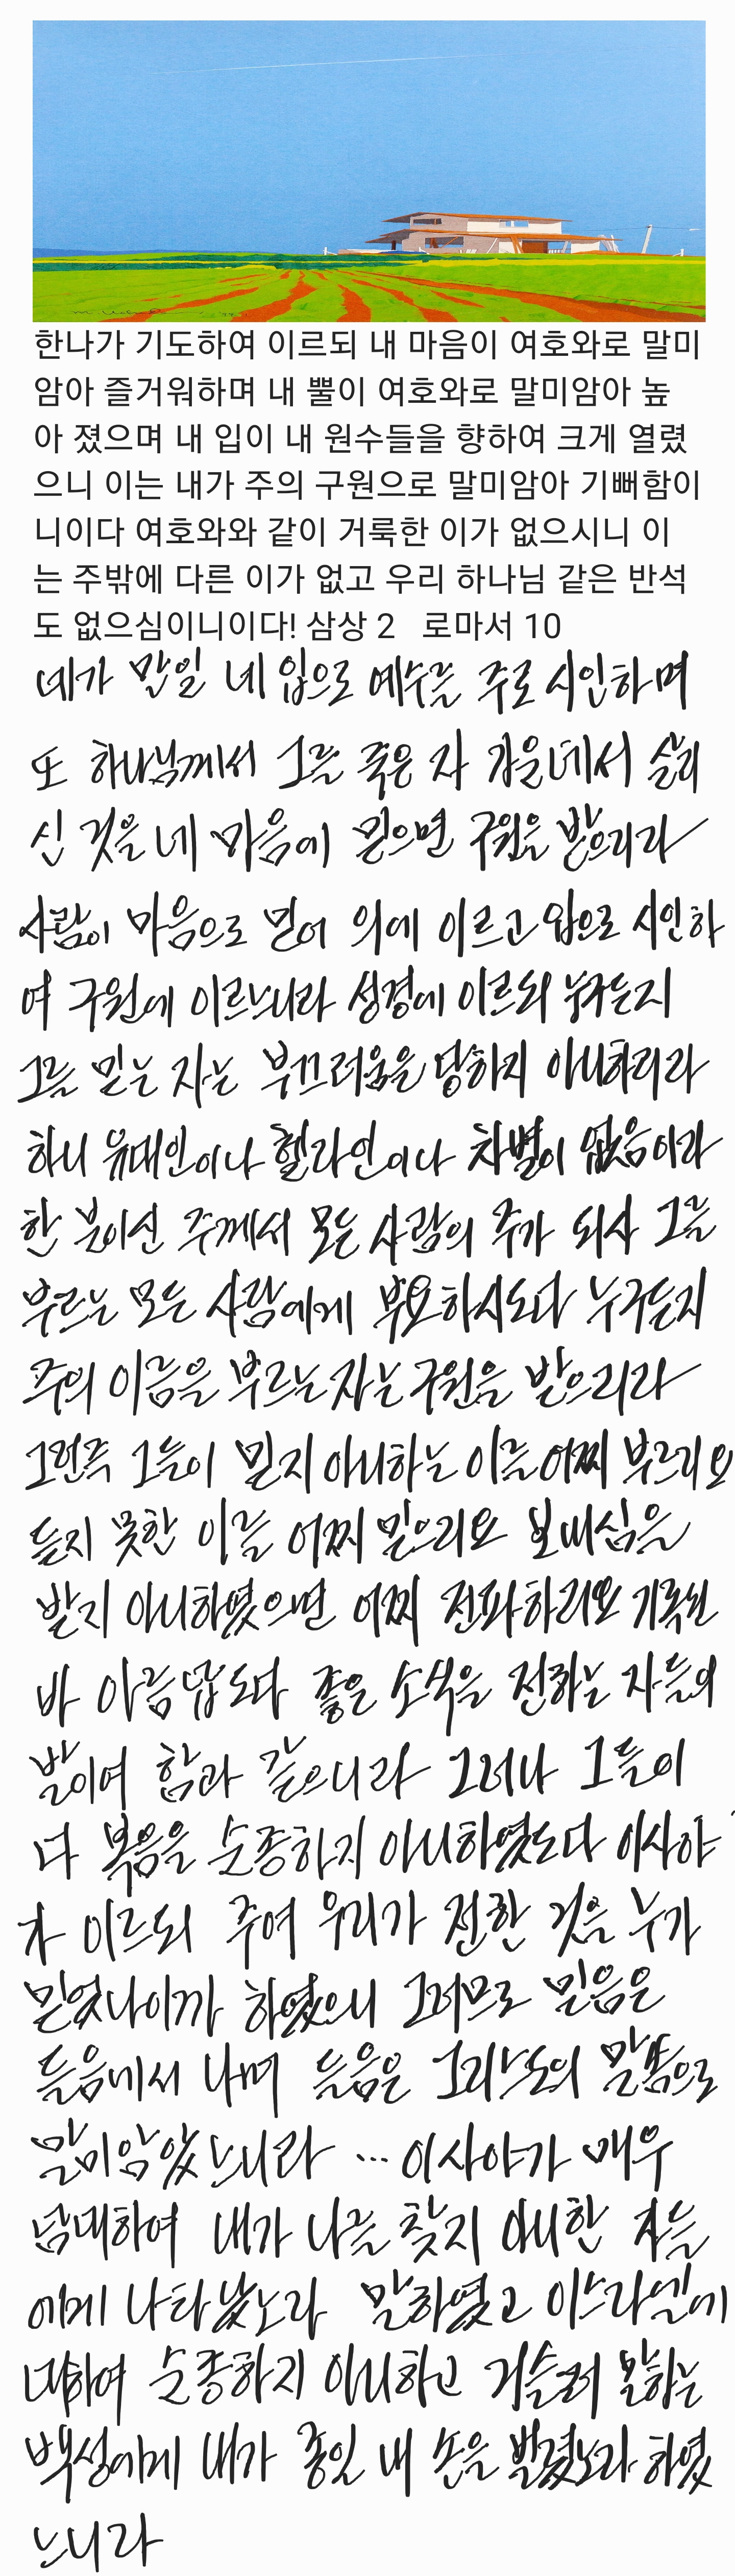 한나가 기도하여 이르되 내 마음이 여호와로 말미
암아 즐거워하며 내 뿔이 여호와로 말미암아 높
아 졌으며 내 입이 내 원수들을 향하여 크게 열렸
으니 이는 내가 주의 구원으로 말미암아 기뻐함이
니이다 여호와와 같이 거룩한 이가 없으시니 이
는 주밖에 다른 이가 없고 우리 하나님 같은 반석
도 없으심이니이다! 삼상 2 로마서 10
네가 만일 네 입으로 예수를 주로 시인하며
또 하나님께서 그를 죽은 자 가운데서 살리
신 것을 네 마음에 믿으면 구원을 받으리라
사람이 마음으로 믿어 의에 이르고 입으로 시인하
여 구원에 이르느니라 성경에 이르되 누구든지
그를 믿는 자는 부끄러움을 당하지 아니하리라
하니 유대인이나 헬라인이나 차별이 없음이라
한 분이신 주께서 모든 사람의 주가 되사 그를
부르는 모든 사람에게 부요하시도다 누구든지
주의 이름을 부르는 자는 구원을 받으리라
그런즉 그들이 믿지 아니하는 이를 어찌 부르리요
듣지 못한 이를 어찌 믿으리요 보내심을
받지 아니하였으면 어찌 전파하리요 기록된
바 아름답도다 좋은 소식을 전하는 자들의
발이여 함과 같으니라 그러나 그들이
다 복음을 순종하지 아니하였도다 이사야
가 이르되 주여 우리가 전한 것을 누가
믿었나이까 하였으니 그러므로 믿음은
들음에서 나며 들음은 그리스도의 말씀으로
말미암았느니라 ... 이사야가 매우
담대하여 내가 나를 찾지 아니한 자들
에게 나타났노라 말하였고 이스라엘에
대하여 순종하지 아니하고 거슬러 말하는
백성에게 내가 종일 내 손을 벌렸노라 하였
느니라